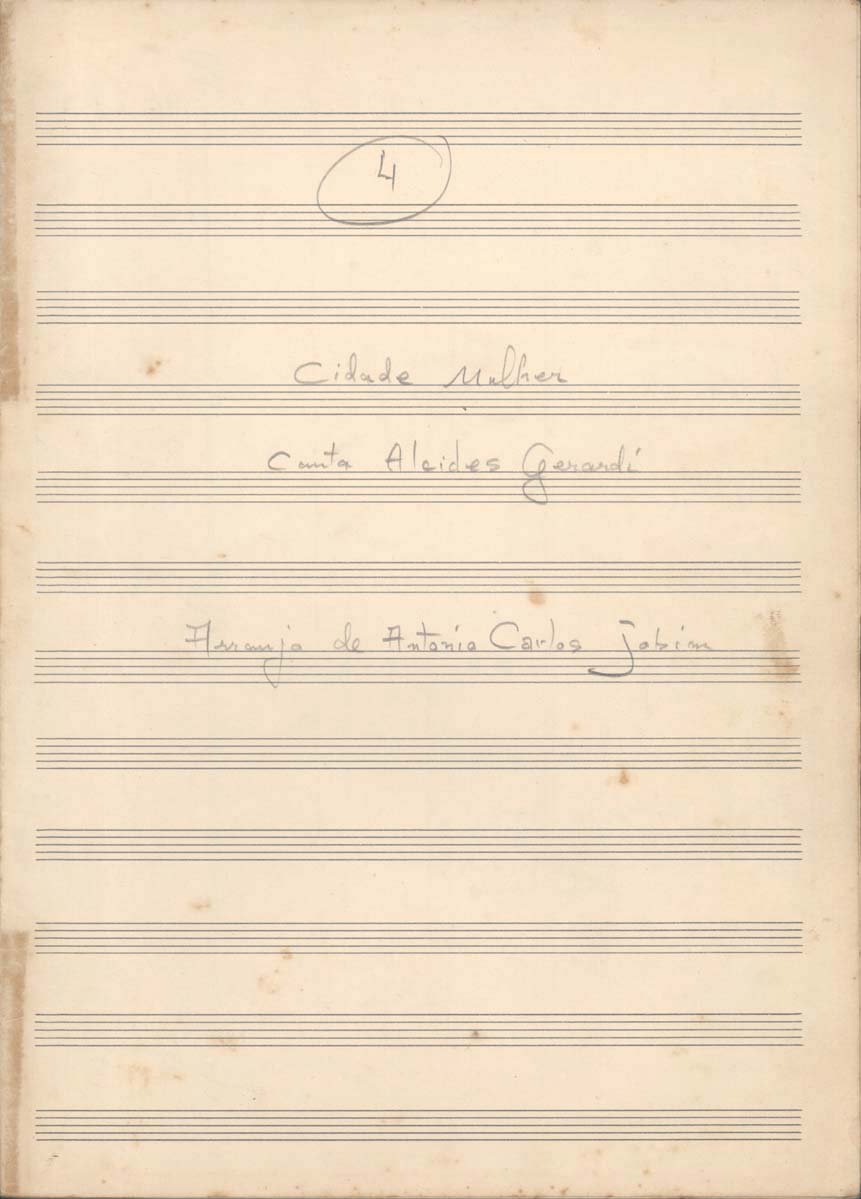 4
Cidade Mulher
Canta Alcides Gerardi
Arranjo de Antonio Carlos Jobim